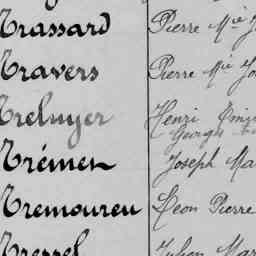 Trassard Pierre Mie J
Travers Pierre Mie Jo
Treluyer Henri Émi
Georges
Trémen Joseph Ma
Tremoureu Leon Pierre
Tressel Julien Mar